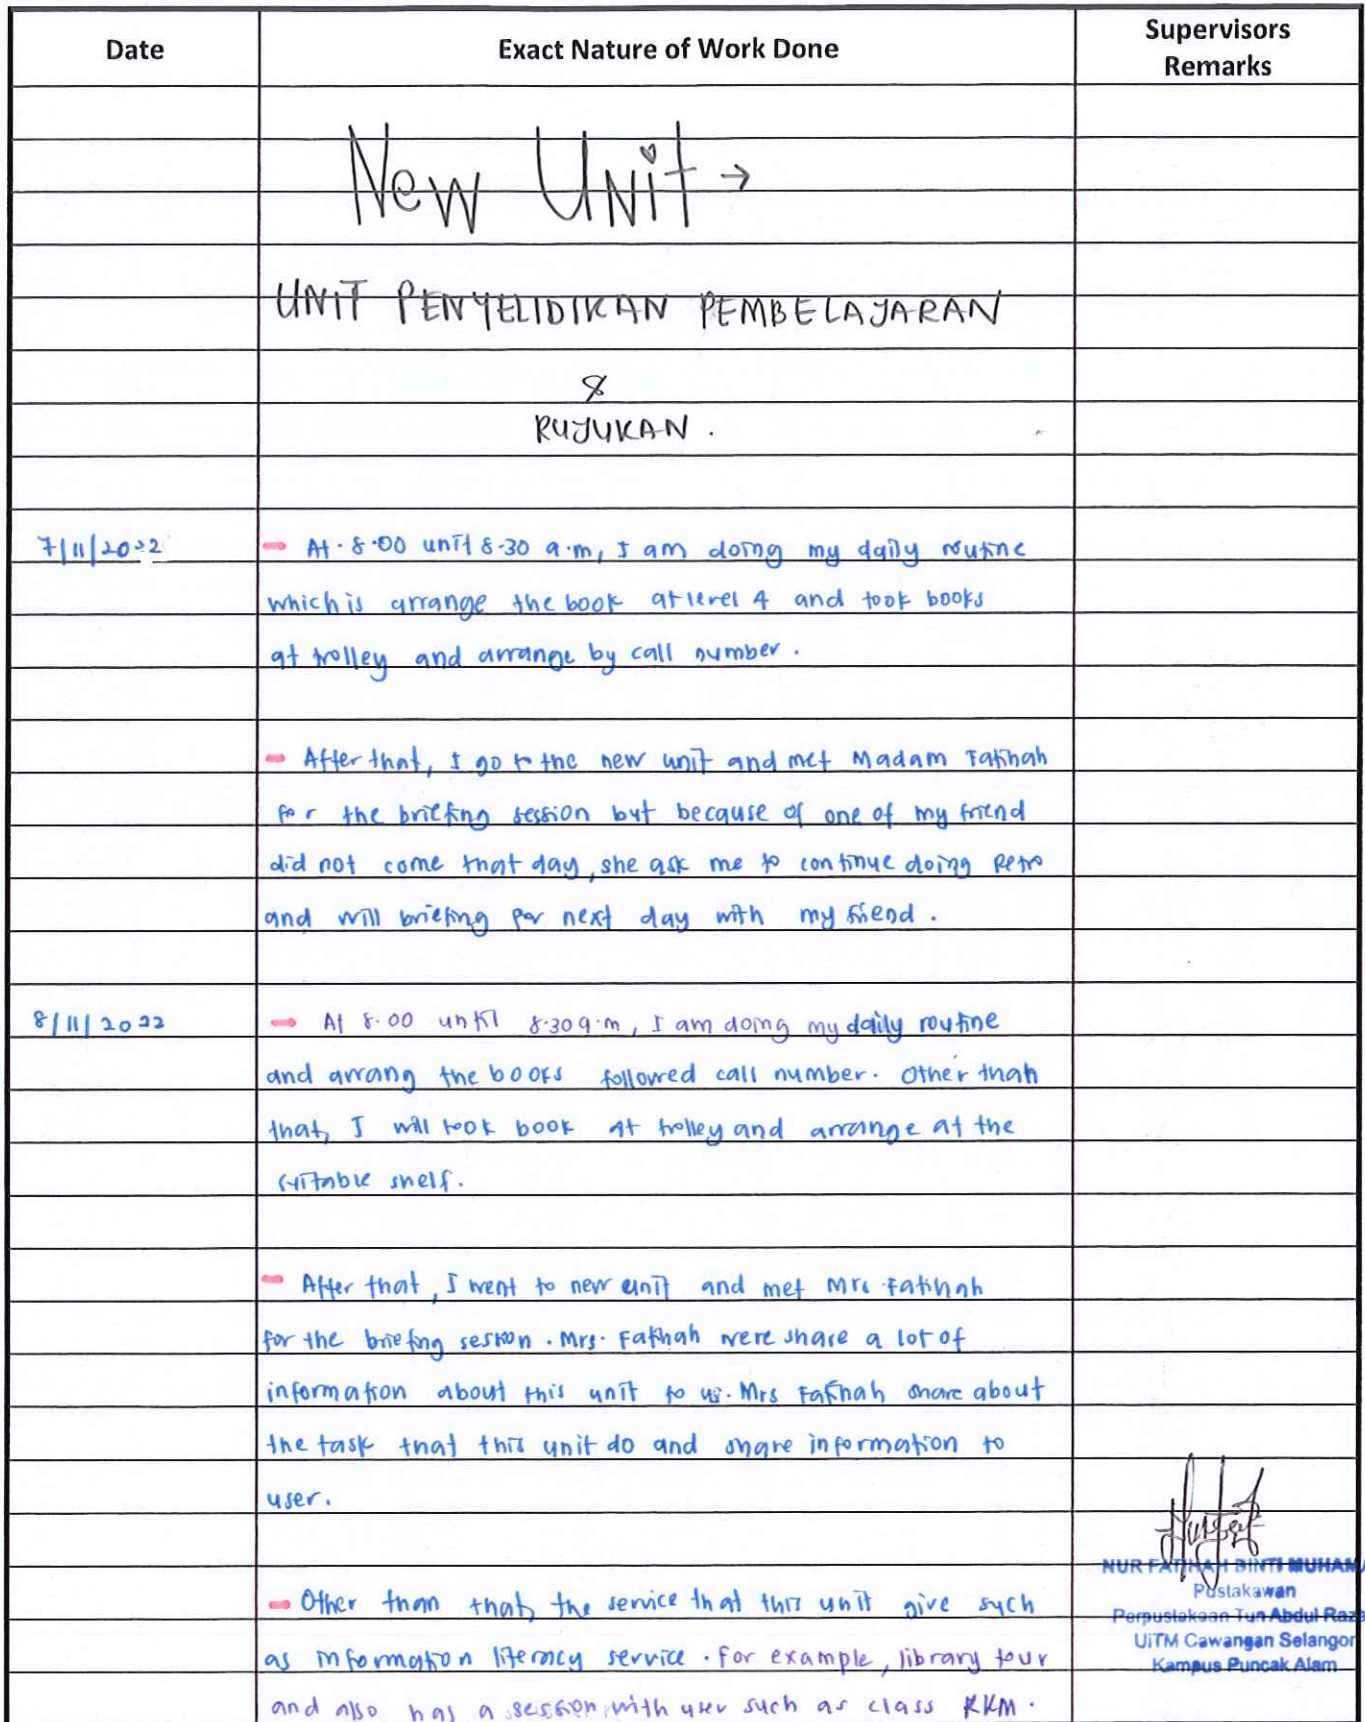 Date Exact Nature of Work Done Supervisors Remarks
New Unit →
UNIT PENYELIDIKAN PEMBELAJARAN
&
RUJUKAN .
7/11/2022 - At 8.00 unit 8.30 a.m, I am doing my daily routine
which is arrange the book at level 4 and took books
at trolley and arrange by call number.
- After that, I go to the new unit and met Madam Fatihah
for the briefing session but because of one of my friend
did not come that day, she ask me to continue doing Retro
and will briefing for next day with my friend.
8/11/2022 - At 8.00 until 8.30 a.m, I am doing my daily routine
and arrang the books followed call number. Other than
that, I will took book at trolley and arrange at the
suitable shelf.
- After that, I went to new unit and met Mrs Fatihah
for the briefing session. Mrs. Fatihah were share a lot of
information about this unit to us. Mrs Fatihah share about
the task that this unit do and share information to
user.
- Other than that, the service that this unit give such
as information literacy service. For example, library tour
and also has a session with user such as class KKM.
NUR FATIHAH BINTI MUHAMA
Pustakawan
Perpustakaan Tun Abdul Raza
UiTM Cawangan Selangor
Kampus Puncak Alam